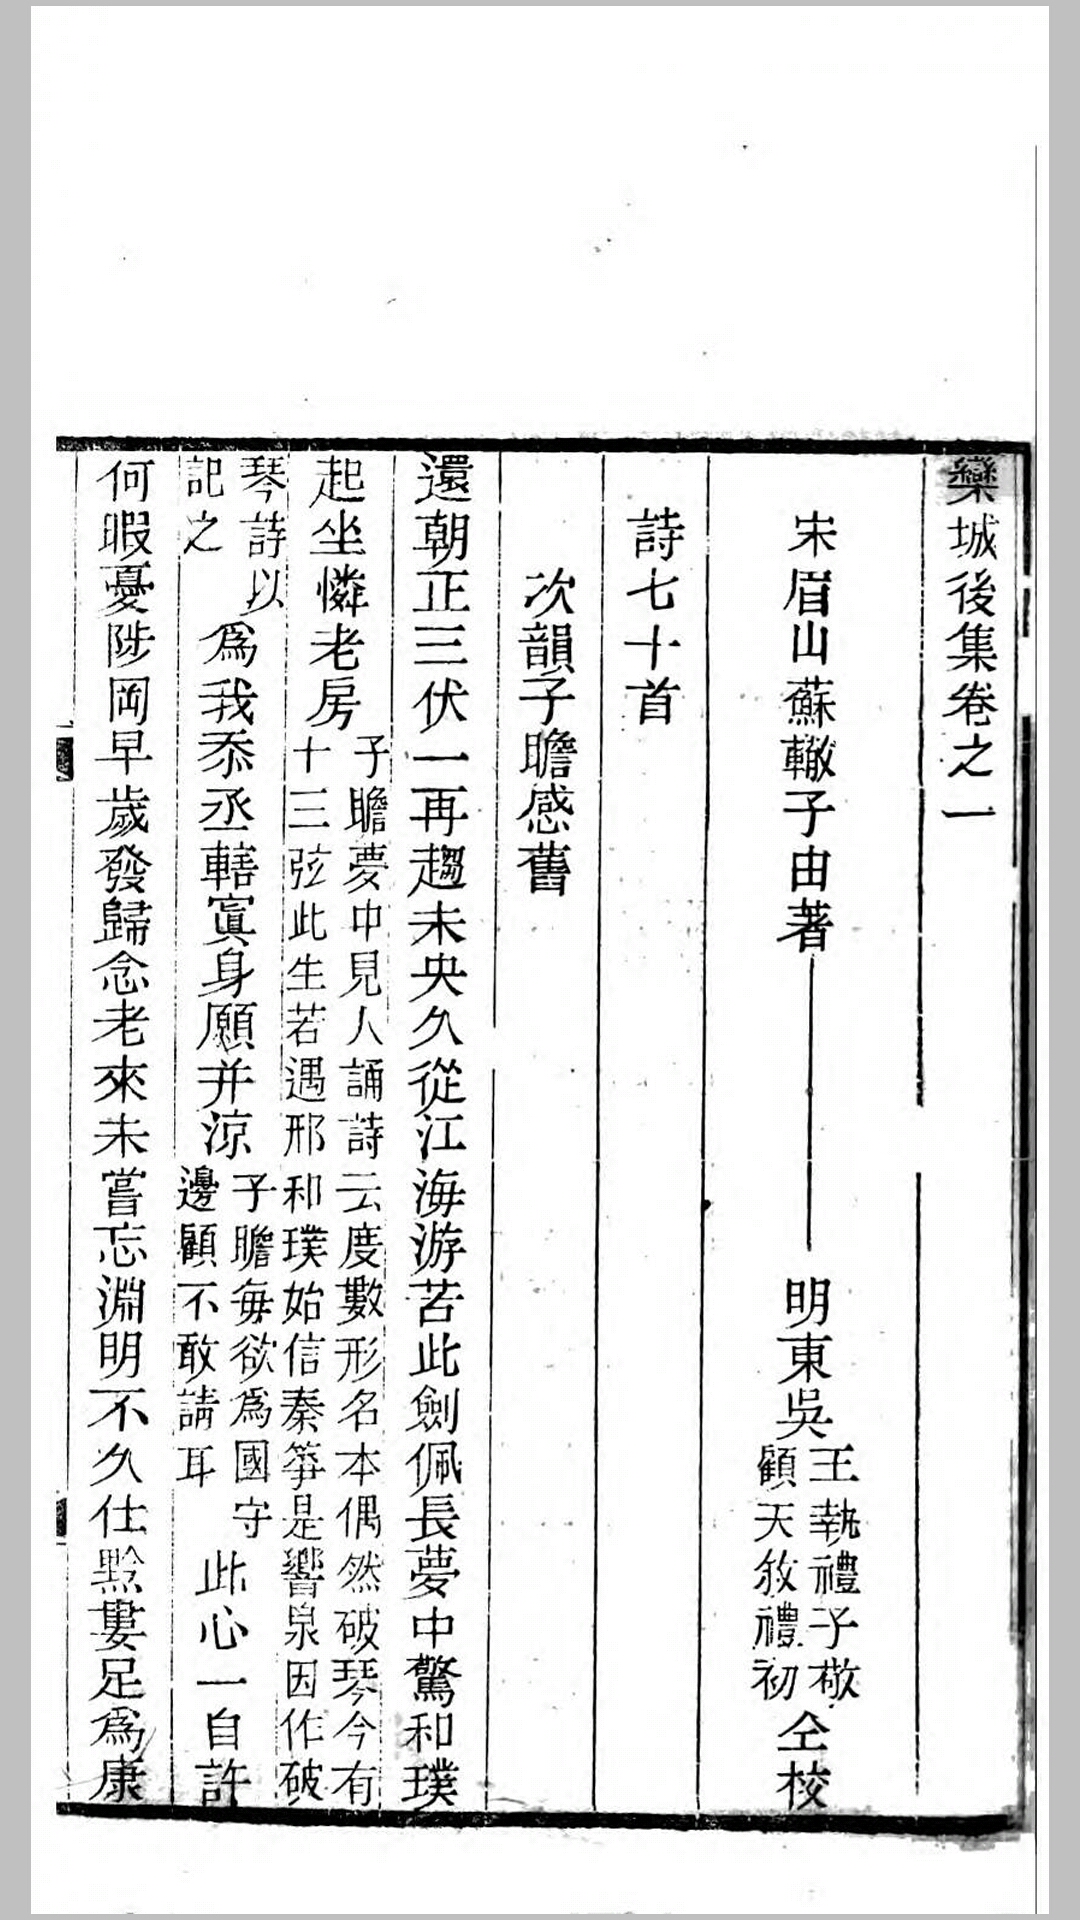 欒城後集卷之一
宋眉山蘇轍子由著
明東吳
王執禮子敬
顧天敘禮初
仝校
詩七十首
次韻子瞻感舊
還朝正三伏一再趨未央久從江海游苦此劍佩長夢中驚和璞
起坐憐老房
子瞻夢中見人誦詩云度數形名本偶然破琴今有
十三弦此生若遇邢和璞始信秦箏是響泉因作破
琴詩以
記之
為我忝丞轄寘身願并涼
子瞻每欲為國守
邊顧不敢請耳
此心一自許
何暇憂陟岡早歲發歸念老來未嘗忘淵明不久仕黔婁足為康